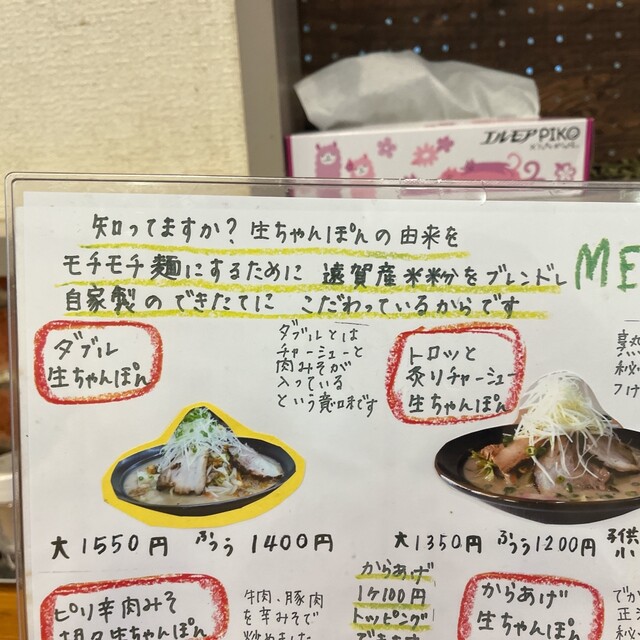 エルモア PIKO
知ってますか? 生ちゃんぽんの由来を
モチモチ麺にするために 遠賀産米粉をブレンドし
自家製のできたてに こだわっているからです
ME
ダブル
生ちゃんぽん
ダブルとは
チャーシューと
肉みそが
入っている
という意味です
トロッと
炙りチャーシュー
生ちゃんぽん
つけ
大1550円 ふつう 1400円
大1350円 ふつう1200円
子供
小
ピリ辛肉みそ
生ちゃんぽん
牛肉、豚肉
を辛みそで
炒めました
からあげ
1ヶ100円
トッピング
できます
からあげ
生ちゃんぽん
でか
正